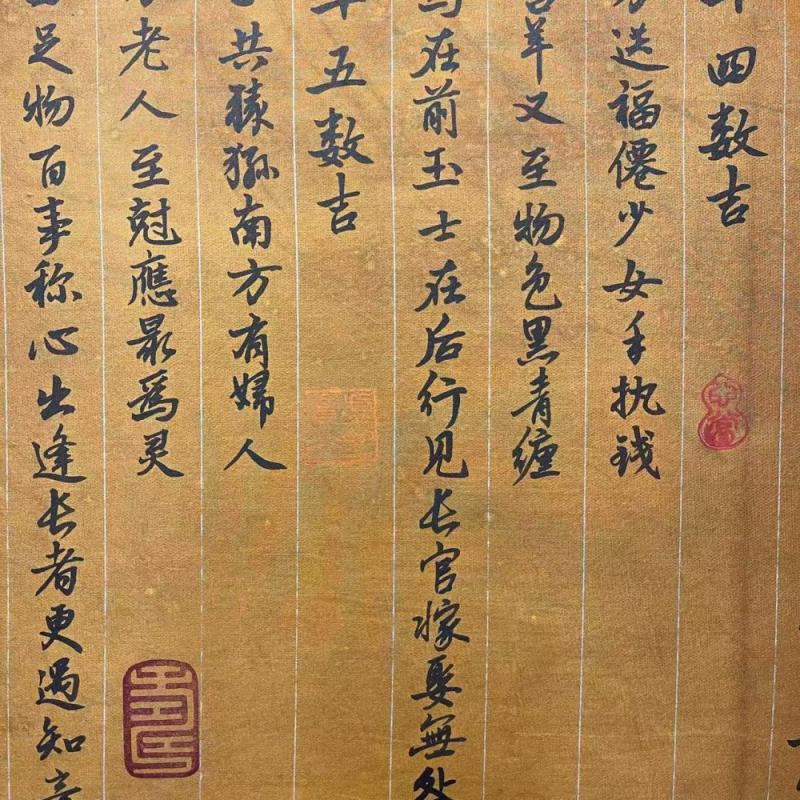 四数吉
送福僊少女手执钱
羊又至物色黑青缠
在前玉士在后行见长官嫁娶無处
五数吉
共猿猕南方有婦人
老人至尅應最爲灵
足物百事称心出逢长者更遇知音